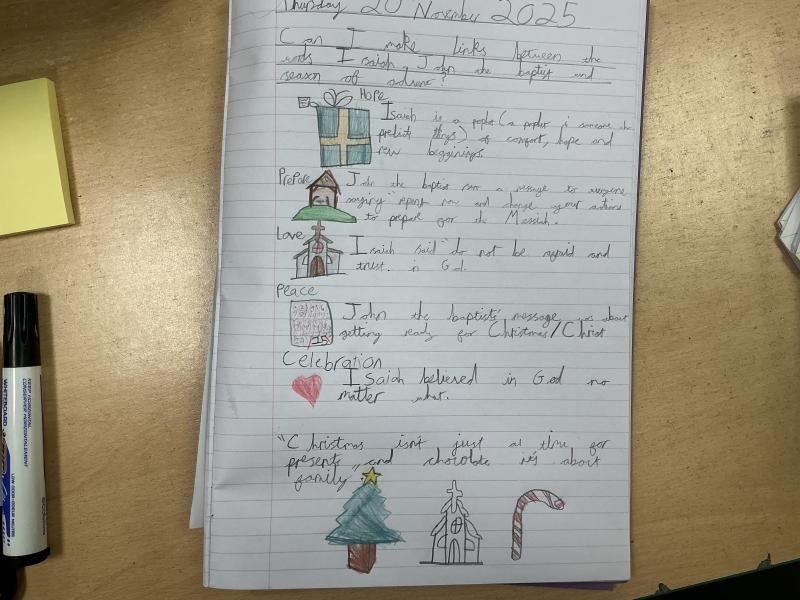 Thursday 20 November 2025
Can I make links between the
words Isaiah, John the baptist and
season of advent?
Hope
Isaiah is a (a is someone
predicts things) of comfort, hope and
new begginings.
Prepare
John the baptist a message to everyone
saying "repent now and change your actions
to prepare for the Messiah.
Love
Isaiah said "do not be afraid and
trust in God.
Peace
John the baptists' message was about
getting ready for Christmas/Christ
Celebration
Isaiah believed in God no
matter what.
"Christmas isn't just a time for
presents, and chocolate it's about
family"
KEEP HORIZONTAL
CONSERVER HORIZONTALEMENT
WHITEBOARD